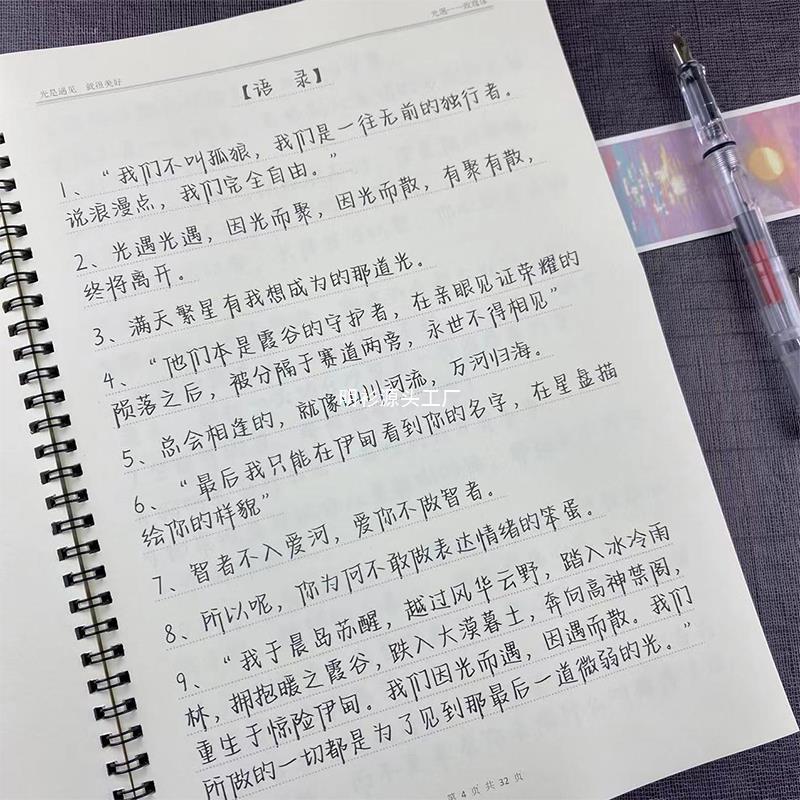 光是遇见 就很美好
光遇——玫瑰体
【语 录】
1、“我们不叫孤狼，我们是一往无前的独行者。
说浪漫点，我们完全自由。”
2、光遇光遇，因光而聚，因光而散，有聚有散，
终将离开。
3、满天繁星有我想成为的那道光。
4、“他们本是霞谷的守护者，在亲眼见证荣耀的
陨落之后，被分隔于赛道两旁，永世不得相见”
5、总会相逢的，就像山川河流，万河归海。
6、“最后我只能在伊甸看到你的名字，在星盘描
绘你的样貌”
7、智者不入爱河，爱你不做智者。
8、所以呢，你为何不敢做表达情绪的笨蛋。
9、“我于晨岛苏醒，越过风华云野，踏入冰冷雨
林，拥抱暖之霞谷，跌入大漠暮土，奔向高神禁阁，
重生于惊险伊甸。我们因光而遇，因遇而散。我们
所做的一切都是为了见到那最后一道微弱的光。”
第 4 页 共 32 页
源头工厂